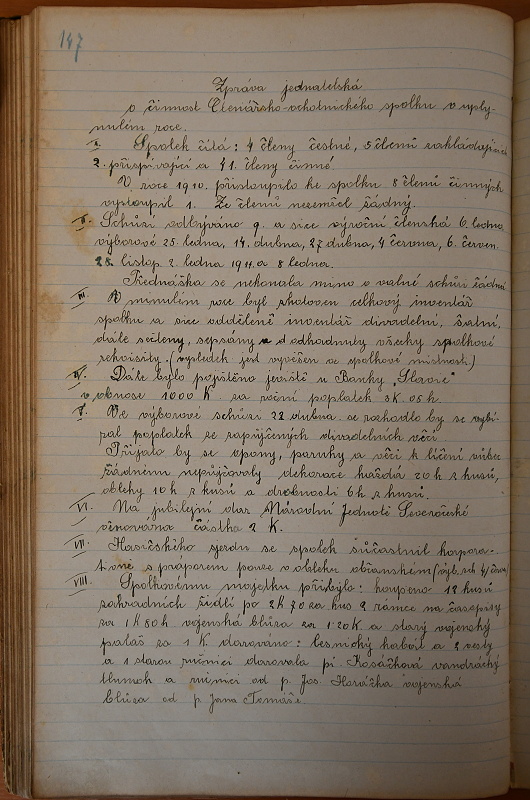 147
Zpráva jednatelská
o činnosti Čtenářsko-ochotnického spolku v uply-
nulém roce.
I. Spolek čítá: 4 členy čestné, 5 členů zakládajících
2. přispívající a 41. členy činné.
V roce 1910. přistoupilo ke spolku 8 členů činných
vystoupil 1. Ze členů nezemřel žádný.
II. Schůzí odbýváno 9. a sice výroční členská 6. ledna,
výborové 25. ledna, 14. dubna, 27 dubna, 4 června, 6. červen.
28. listop. 2. ledna 1911. a 8 ledna.
Přednáška se nekonala mimo o valné schůzi žádná
III. V minulém roce byl zhotoven celkový inventář
spolku a sice odděleně inventář divadelní, šatní,
dále sčteny, sepsány a odhodnuty všechy spolkové
rekvisity. (výsledek jest vyvěšen ve spolkové místnosti.)
IV. Dále bylo pojištěno jeviště u Banky "Slavie"
v obnose 1000 K. za roční poplatek 3K. 05 h.
V. Ve výborové schůzi 22 dubna se rozhodlo by se vybí-
ral poplatek ze zapůjčených divadelních věcí.
Přijato by se opony, paruky a věci k líčení vůbec
žádnému nepůjčovaly dekorace každá 20 h z kusů,
obleky 10 h z kusů a drobnosti 6 h z kusů.
VI. Na jubilejní dar Národní Jednotě Severočeské
věnována částka 2 K.
VII. Hasičského sjezdu se spolek súčastnil korpora-
tivně s praporem pouze v obleku občanském (výb. sch. 4/ června)
VIII. Spolkovému majetku přibylo: koupeno 12 kusů
zahradních židlí po 2K 70 za kus 2 rámce na časopisy
za 1 K 80 h vojenská blůza za 1·20 K a starý vojenský
palaš za 1 K. darováno: lesnický kabát a 2 vesty
a 1 starou ručnici darovala pí Kosáčková vandrácký
tlumok a ručnici od p. Jos. Horáčka vojenská
blůza od p. Jana Tomáše.